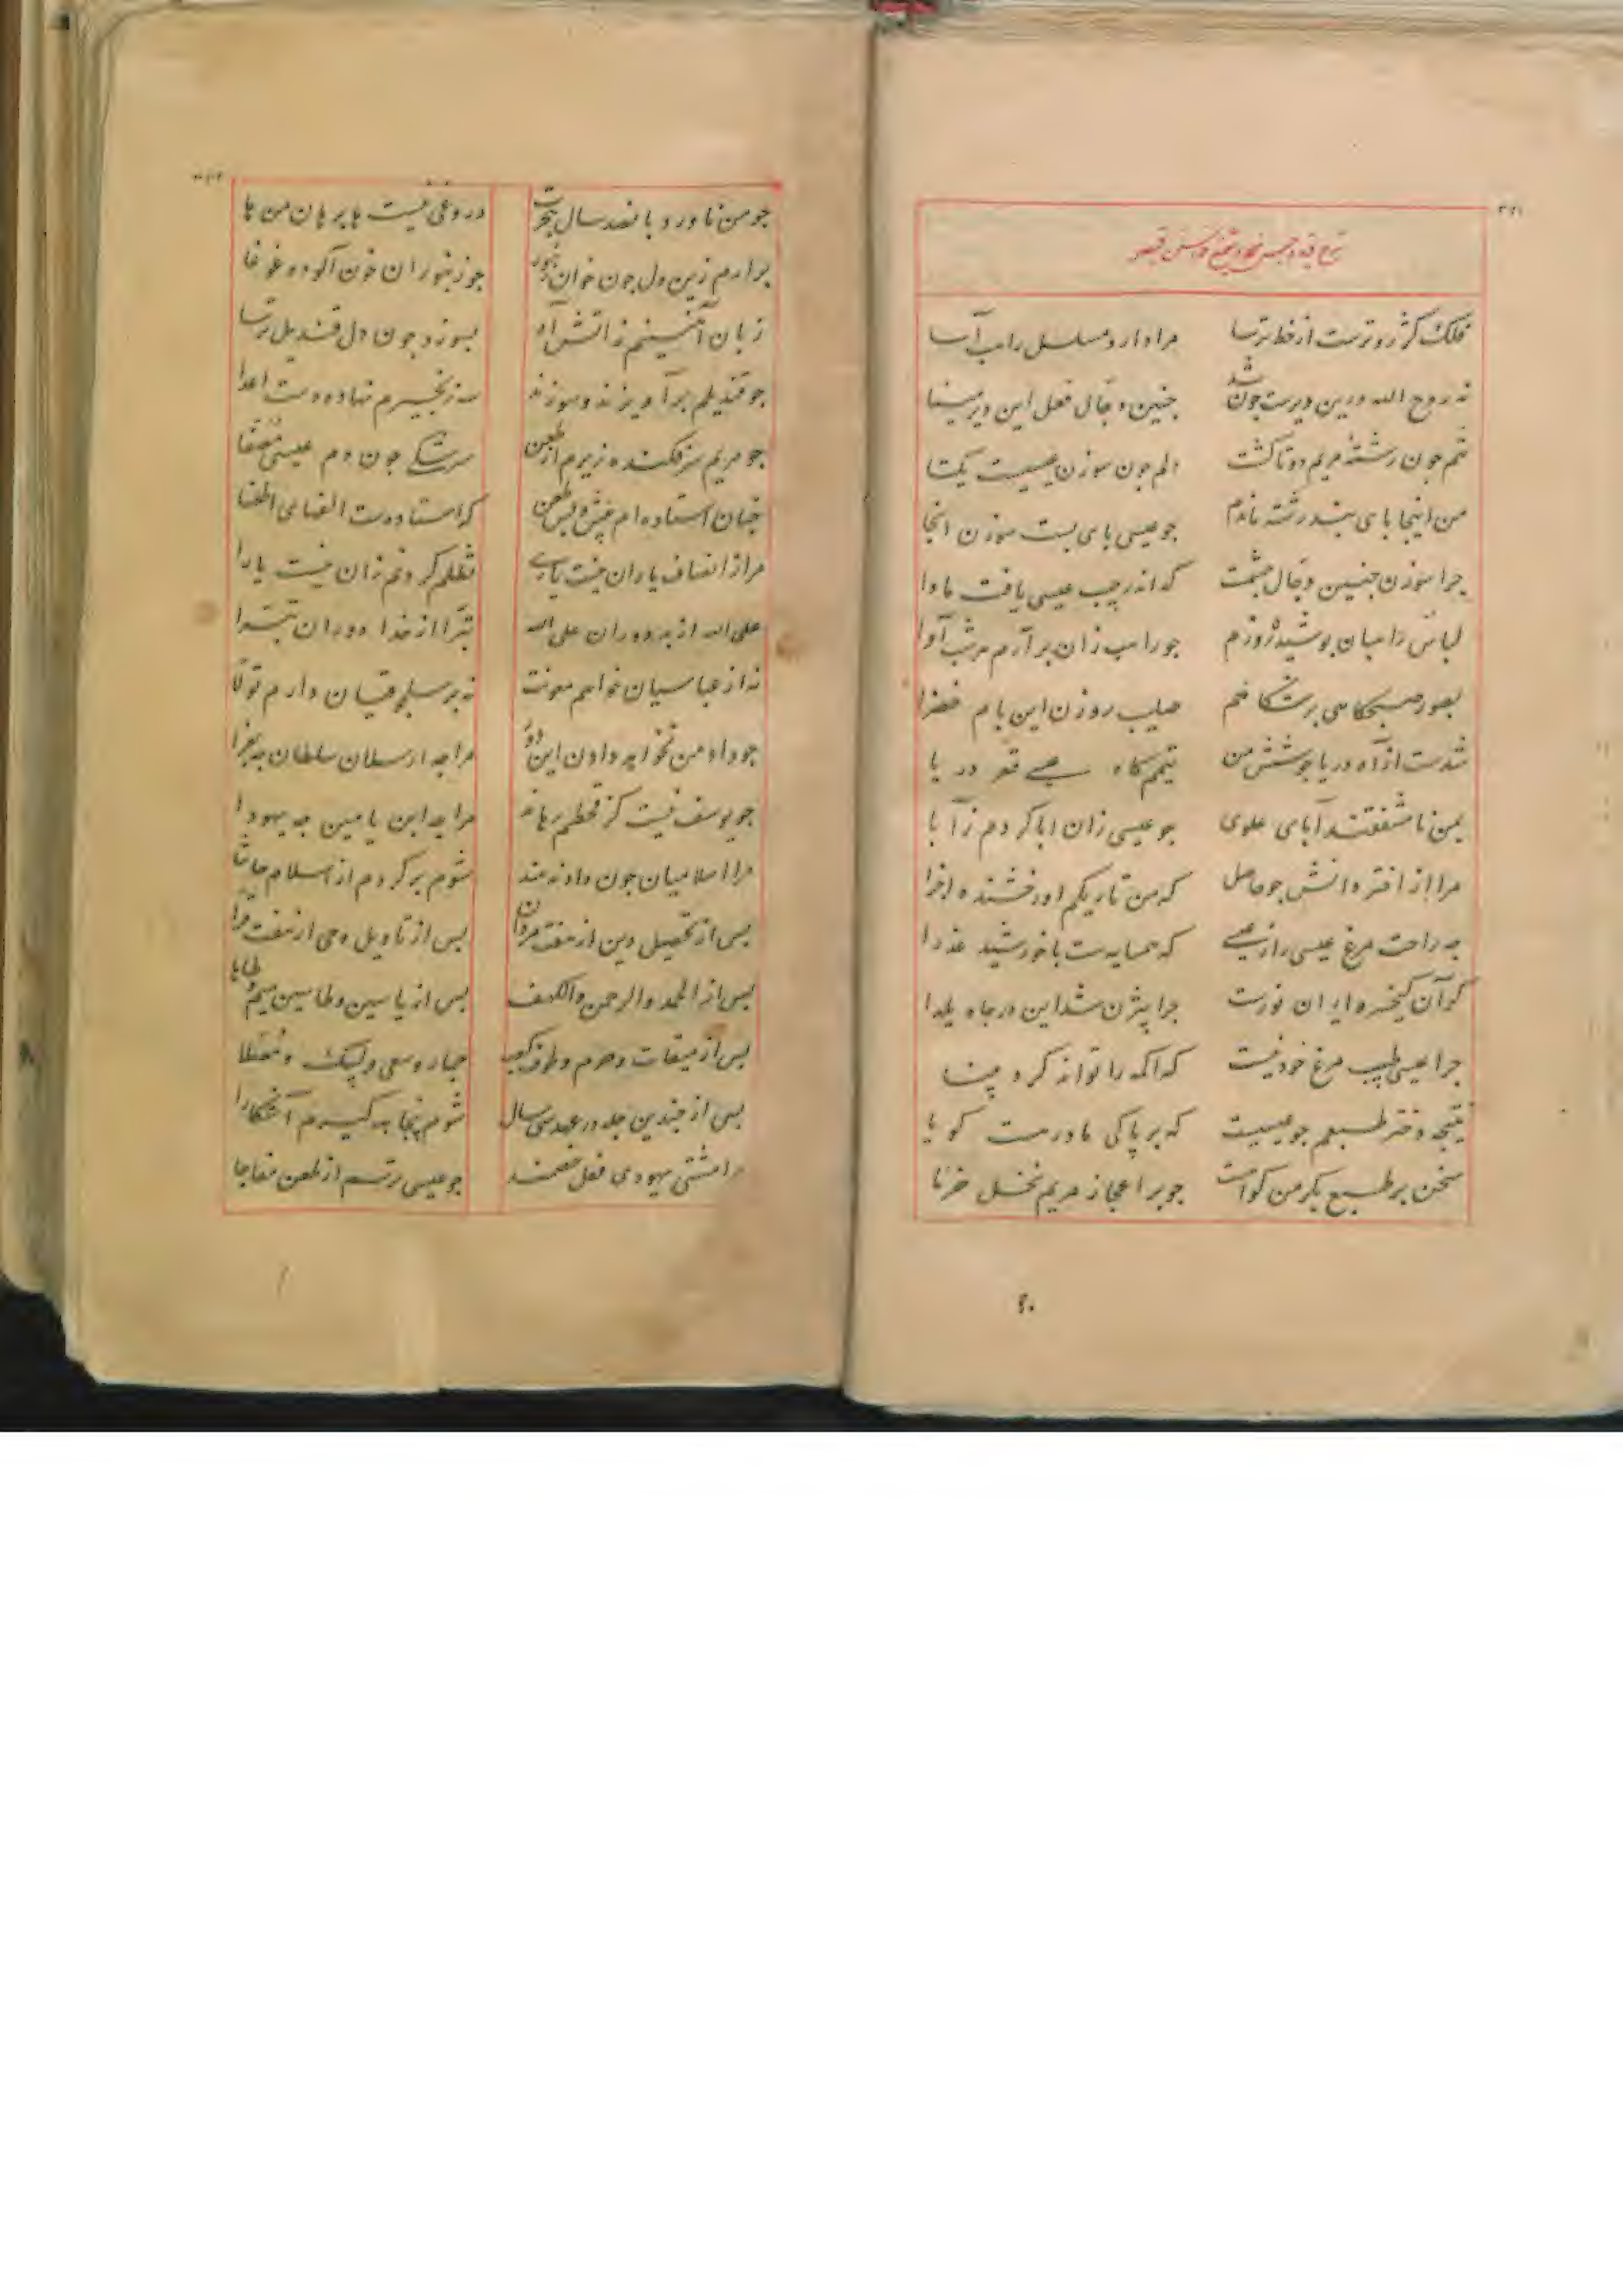 فلک کژ رو ترست از خط ترسا مرا دارد مسلسل راهب آسا
نه روح الله درین دیرست چون شد جنین دجال فعل این دیر مینا
تنم جون رشتهٔ مریم دوتا کشت دلم جون سوزن عیسیست یکتا
من اینجا بای بند رشته ماندم جو عیسی بای بست سوزن انجا
جرا سوزن جنین دجال جشمست که اندر جیب عیسی یافت ماوا
لباس راهبان بوشیده روزم جو راهب زان برآرم هر شب آوا
بصور صبحکاهی بر شکافم صلیب روزن این بام خضرا
شدست از آه دریا جوشش من تیمم کاه عیسی قعر دریا
بمن نامشفقند آبای علوی جو عیسی زان ابا کردم ز آبا
مرا از اختر دانش جو حاصل که من تاریکم او رخشنده اجزا
جه راحت مرغ عیسی را ز عیسی که همسایه ست با خورشید عذرا
کر آن کیخسرو ایران نورست جرا بیژن شد این در جاه یلدا
جرا عیسی طبیب مرغ خود نیست که اکمه را تواند کرد بینا
نتیجه دختر طبعم جو عیسیست که بر باکی مادر هست کویا
سخن بر طبع بکر من کواهست جو بر اعجاز مریم نخل خرما
جو من ناورد بانصد سال هجرت دروغی نیست ها برهان من ها
برآرم زین دل جون خوان زنبور جو زنبوران خون آلوده غوغا
زبان آتشینم ز آتش آه بسوزد جون دل قندیل ترسا
جو قندیلم برآویزند و سوزند سه زنجیرم نهاده دست اعدا
جو مریم سر فکنده زیرم از طعن سرشکی جون دم عیسی مصفا
جنان استاده ام بیش و بس طعن که استادست الفهای اطعنا
مرا از انصاف یاران نیست یاری تظلم کردنم زان نیست یارا
علی الله از بد دوران علی الله تبرا از خدا دوران تبرا
نه از عباسیان خواهم معونت نه بر سلجوقیان دارم تولا
جو داد من نخواهد دادن این دور مرا جه ارسلان سلطان جه بغرا
جو یوسف نیست کز قحطم رهاند مرا جه ابن یامین جه یهودا
مرا اسلامیان جون داد ندهند شوم بر کردم از اسلام حاشا
بس از تحصیل دین از هفت مردان بس از تاویل وحی از هفت قرا
بس از الحمد و الرحمن و الکهف بس از یاسین و طاسین میم و طاها
بس از میقات و حرم و طوف کعبه جمار و سعی و لبیک و مصلا
بس از جندین جله در عهد سی سال شوم بنجاهه کیرم آشکارا
مرا مشتی یهودی فعل خصمند جو عیسی ترسم از طعن مفاجا